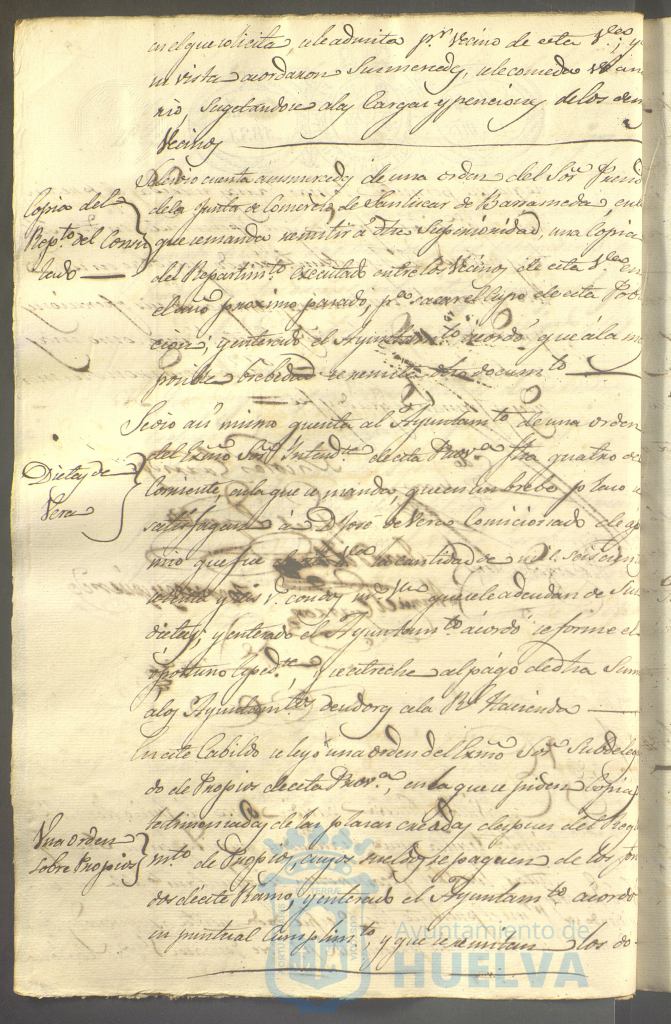 en el que solicita, se le admita p.r Vecino de esta V.ª; y
en vista acordaron Sus mercedes, se le conceda
rio, Sugetandose a las Cargas y penciones de los dem
Vecinos
Se dio cuenta a sus mercedes de una orden del Sor. Presid
Copia del
Rep.to del Consu
lado
de la Junta de Comercio de Sanlucar de Barrameda, en la
que se manda remitir a dha Superioridad, una Copia
del Repartim.to executado entre los Vecinos de esta V.ª en
el año proximo pasado, p.ª sacar el Cupo de esta Pob
cion; y enterado el Ayuntam.to acordó, que á la m
posible brebedad se remita dho docum.to
Se dio asi mismo cuenta al Ayuntam.to de una orden
Dietas de
Vera
del Exmo Sor. Intend.te de esta Prov.ª fha quatro de
Corriente, en la que se manda, que en un brebe plazo se
satisfagan á D. José de Vera Comicionado de
mio que fue de esta V.ª la cantidad de mil seiscien
setenta y tres r.s con dos mrs V.n que se le adeudan de Sus
dietas; y enterado el Ayuntam.to acordó se forme el
oportuno Exped.te, y se estreche al pago de dha Suma
a los Ayuntam.tos deudores a la R.l Hacienda
En este Cabildo se leyó una orden del Exmo Sor. Subdelega
do de Propios de esta Prov.ª, en la que se piden Copias
Una orden
sobre Propios
testimoniadas de las plazas creadas despues del Regla
m.to de Propios, cuyos sueldos se paguen de los fon
dos de este Ramo, y enterado el Ayuntam.to acordó
su puntual Cumplim.to, y que se remitan los do-
Ayuntamiento de
HUELVA